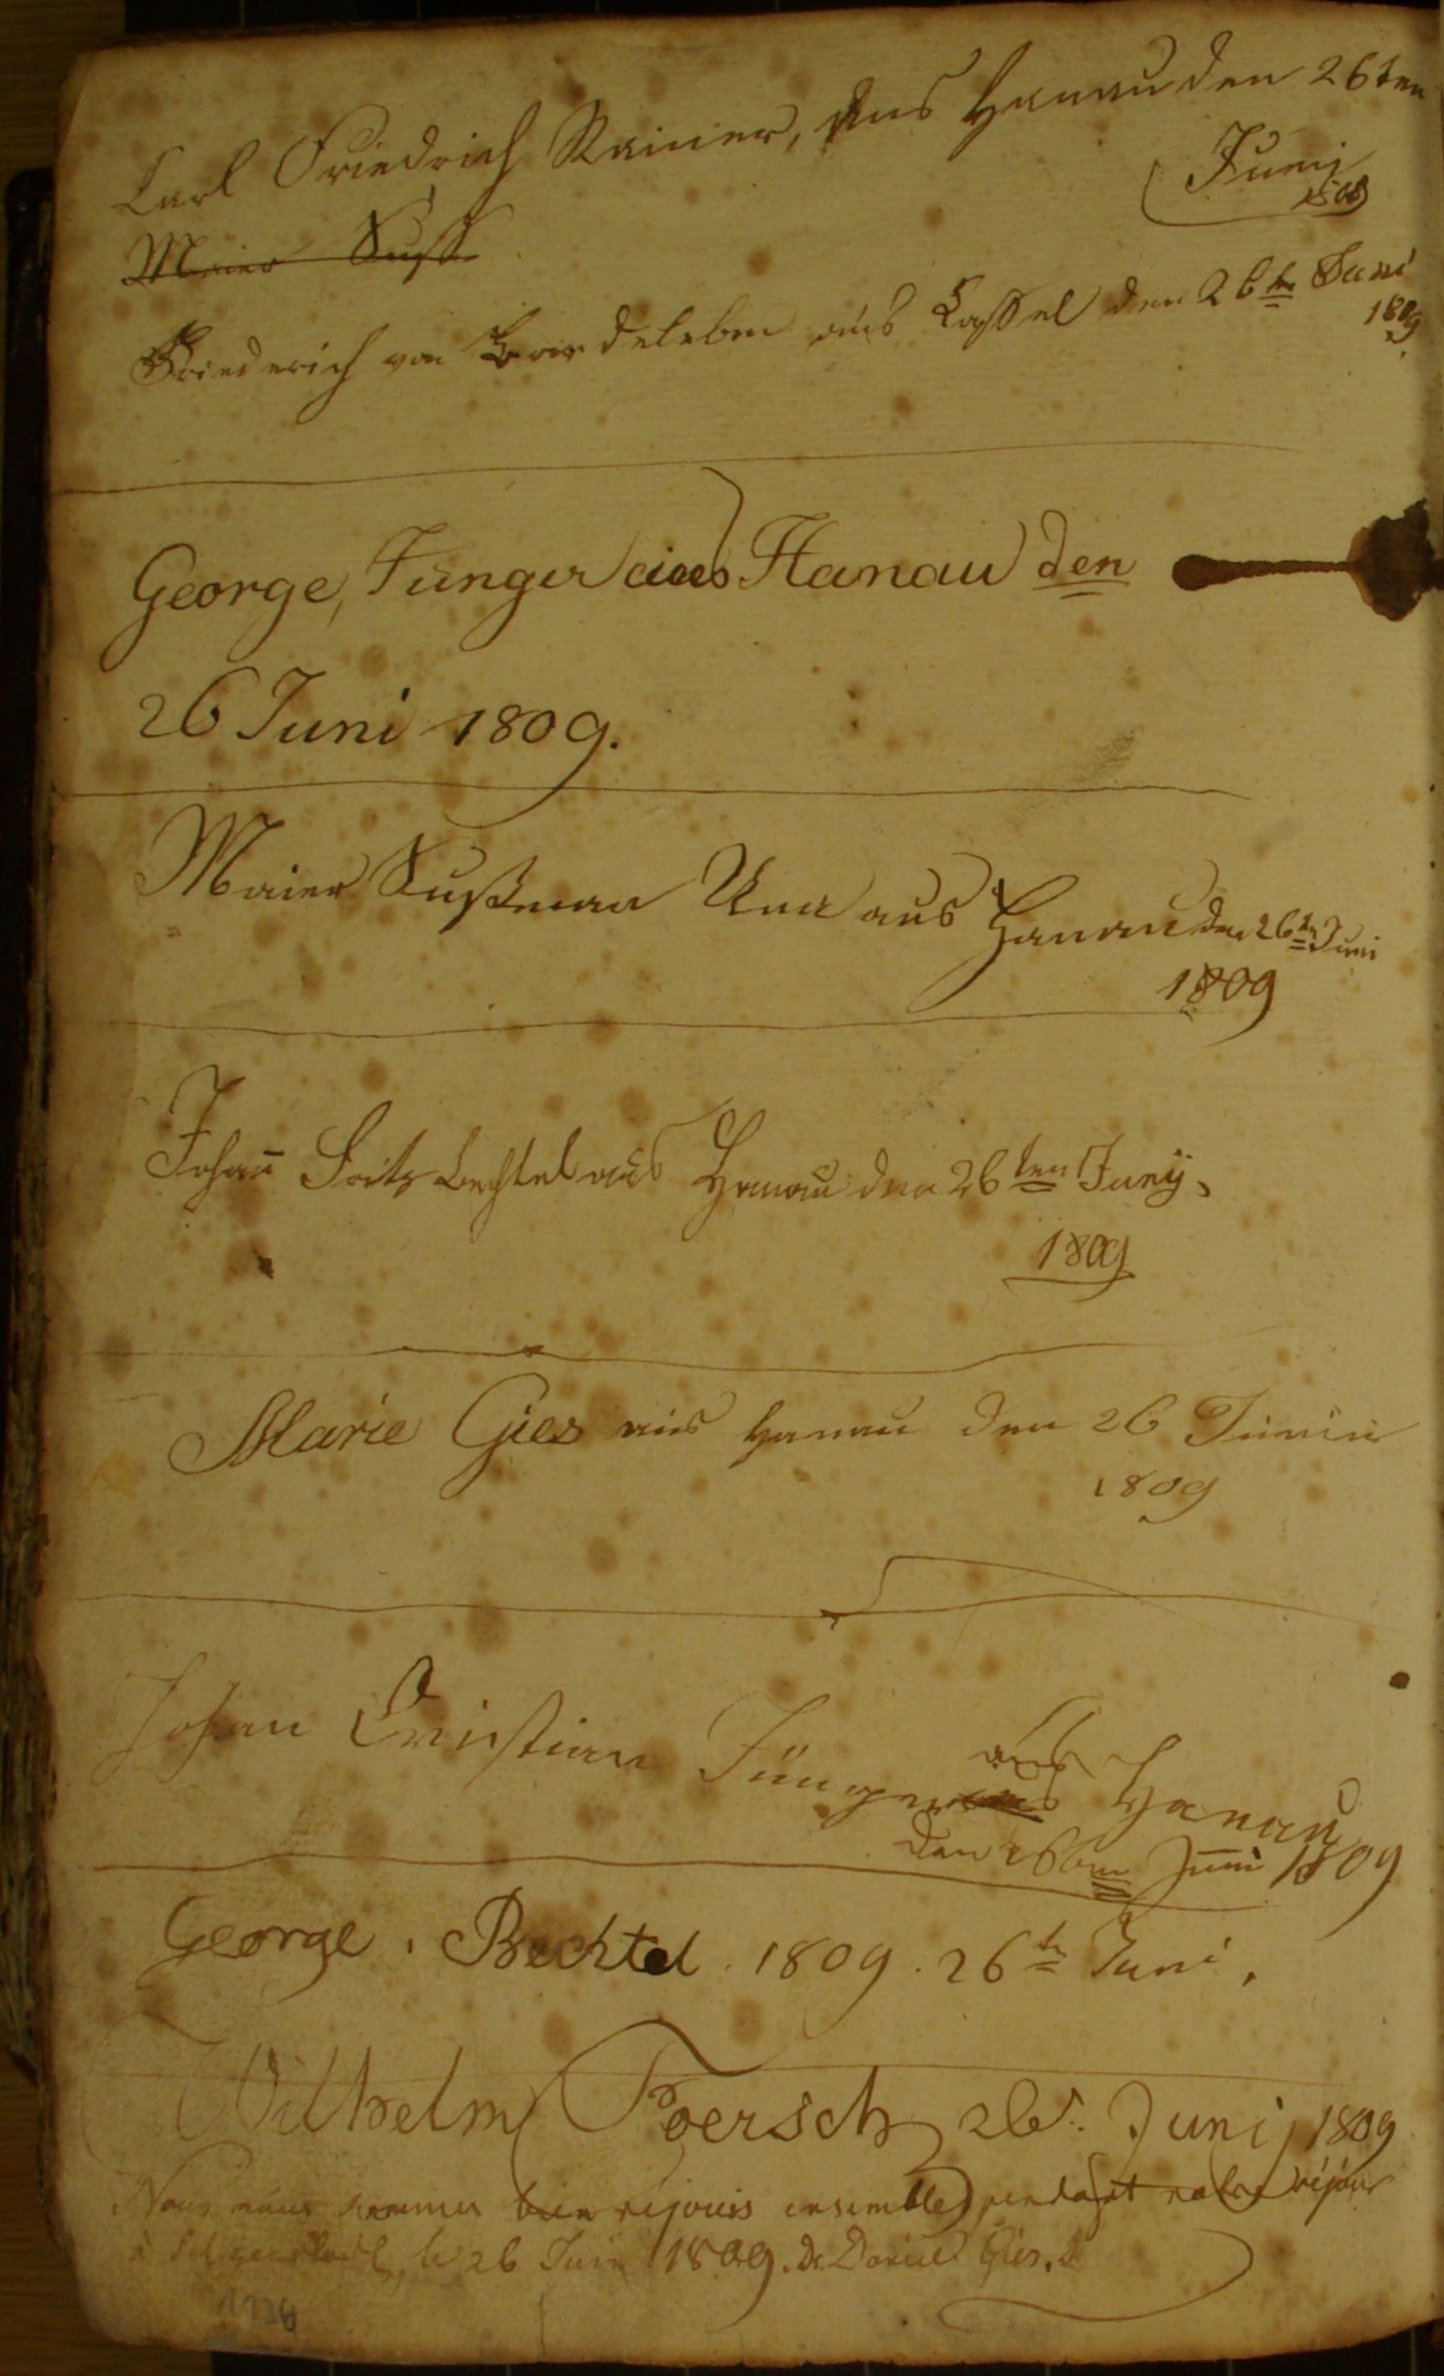 Carl Friedrich Rainer, aus Hanau den 26ten
Junij
1809
Maier Suss
Friederich von Bardeleben aus Cassel den 26te Juni
1809
George, Jünger aus Hanau den
26 Juni 1809.
Maier Sußman Una aus Hanau den 26tn Juni
1809
Johan̄ Fritz Bechtel aus Hanau den 26ten Junÿ,
1809
Marie Gies aus Hanau den 26 Junii
1809
Johan Cristian Jünger aus Hanau
den 26ten Juni 1809
George. Bechtel. 1809. 26te Juni.
Wilhelm Foersch 26t. Junij 1809
Nous nous sommes bien rejouis ensemble pendant notre séjour
à Seligenstadt, le 26 Juin 1809. Gies.